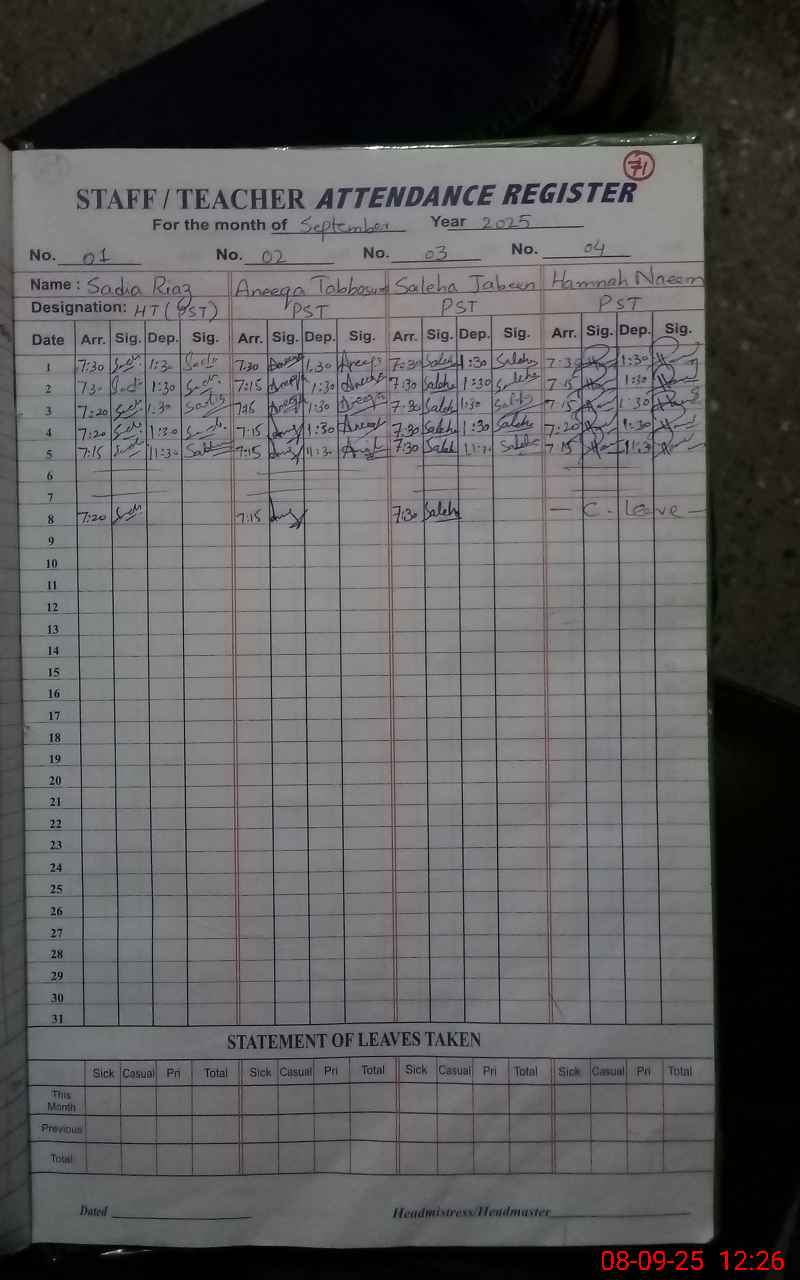 71
STAFF / TEACHER ATTENDANCE REGISTER
For the month of September Year 2025
No. 01 No. 02 No. 03 No. 04
Name : Sadia Riaz Aneeqa Tabbasum Saleha Jabeen Hamnah Naeem
Designation: HT (PST) PST PST PST
Date Arr. Sig. Dep. Sig. Arr. Sig. Dep. Sig. Arr. Sig. Dep. Sig. Arr. Sig. Dep. Sig.
1 7:30 1:30 7:30 1:30 Aneeqa 7:30 Saleha 1:30 Saleha 7:30 1:30
2 7:30 1:30 7:15 1:30 7:30 Saleha 1:30 Saleha 7:15 1:30
3 7:20 1:30 7:15 1:30 Aneeqa 7:30 Saleha 1:30 Saleha 7:15 1:30
4 7:20 1:30 7:15 1:30 7:30 Saleha 1:30 Saleha 7:20 1:30
5 7:15 11:30 7:15 11:30 7:30 Saleha 11:30 Saleha 7:15 11:30
6
7
8 7:20 7:15 7:30 Saleha — C. Leave —
9
10
11
12
13
14
15
16
17
18
19
20
21
22
23
24
25
26
27
28
29
30
31
STATEMENT OF LEAVES TAKEN
Sick Casual Pri Total Sick Casual Pri Total Sick Casual Pri Total Sick Casual Pri Total
This
Month
Previous
Total
Dated Headmistress/Headmaster
08-09-25 12:26